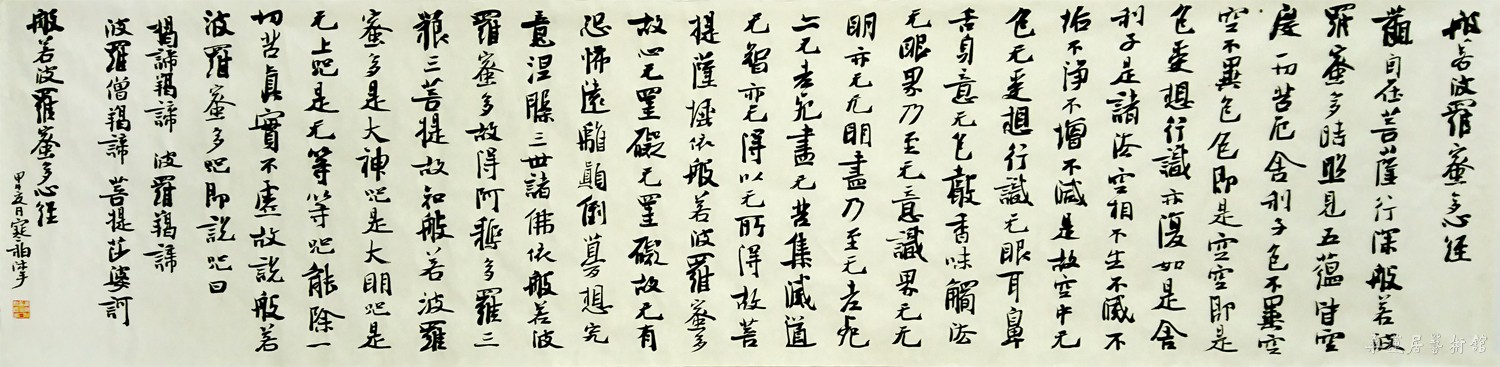 般若波羅蜜多心經
觀自在菩薩行深般若波
羅蜜多時照見五蘊皆空
度一切苦厄舍利子色不異空
空不異色色即是空空即是
色受想行識亦復如是舍
利子是諸法空相不生不滅不
垢不淨不增不減是故空中无
色无受想行識无眼耳鼻
舌身意无色聲香味觸法
无眼界乃至无意識界无无
明亦无无明盡乃至无老死
亦无老死盡无苦集滅道
无智亦无得以无所得故菩
提薩埵依般若波羅蜜多
故心无罣礙无罣礙故无有
恐怖遠離顛倒夢想究
竟涅槃三世諸佛依般若波
羅蜜多故得阿耨多羅三
藐三菩提故知般若波羅
蜜多是大神咒是大明咒是
无上咒是无等等咒能除一
切苦真實不虛故說般若
波羅蜜多咒即說咒曰
揭諦羯諦 波羅羯諦
波羅僧羯諦 菩提莎婆訶
般若波羅蜜多心經
居藝術館